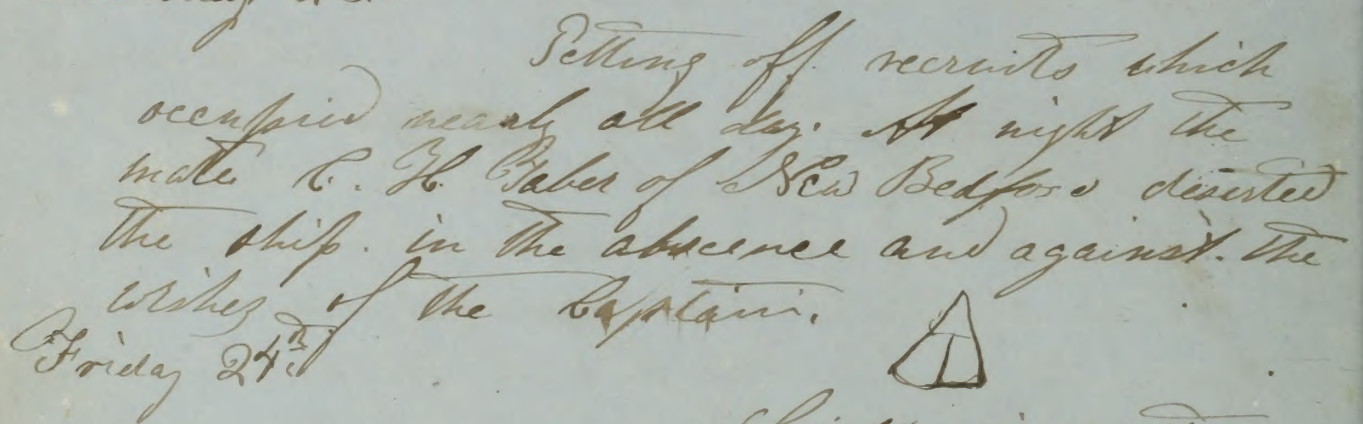 Getting off recruits which
occupied nearly all day. At night the
mate C. H. Taber of New Bedford deserted
the ship. in the abscence and against. the
wishes of the Captain.
Friday 24th